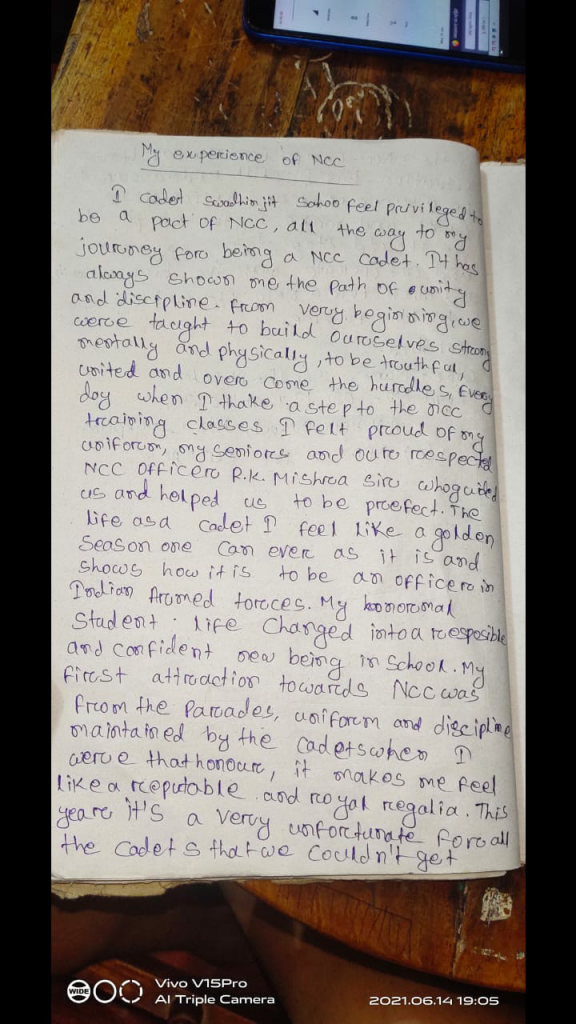 My experience of NCC
I cadet Swadhinjit Sahoo feel privileged to
be a part of NCC, all the way to my
journey for being a NCC cadet. It has
always shown me the path of unity
and discipline. From very beginning, we
were taught to build ourselves strong
mentally and physically, to be truthful,
united and over come the hurdles, Every
day when I thake a step to the ncc
training classes I felt proud of my
uniform, my seniors and our respected
NCC Officer R.K. Mishra sir who guided
us and helped us to be prefect. The
life as a cadet I feel like a golden
season one can ever as it is and
shows how it is to be an officer in
Indian Armed forces. My normal
student life changed into a resposible
and confident new being in school. My
first attraction towards NCC was
from the Parades, uniform and discipline
maintained by the cadets when I
were that honour, it makes me feel
like a reputable and royal regalia. This
year it's a very unfortunate for all
the cadets that we couldn't get
WIDE
Vivo V15Pro
AI Triple Camera
2021.06.14 19:05